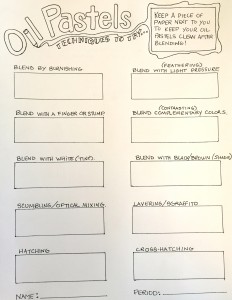 Oil Pastels
TECHNIQUES TO TRY...
KEEP A PIECE OF
PAPER NEXT TO YOU
TO KEEP YOUR OIL
PASTELS CLEAN AFTER
BLENDING!
BLEND BY BURNISHING
(FEATHERING)
BLEND WITH LIGHT PRESSURE
BLEND WITH A FINGER OR STUMP
(CONTRASTING)
BLEND COMPLEMENTARY COLORS
BLEND WITH WHITE (TINT)
BLEND WITH BLACK/BROWN (SHADE)
SCUMBLING/OPTICAL MIXING
LAYERING/SGRAFFITO
HATCHING
CROSS-HATCHING
NAME:
PERIOD: